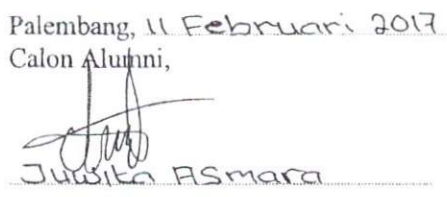 Palembang, 11 Februari 2017
Calon Alumni,
Juwita Asmara